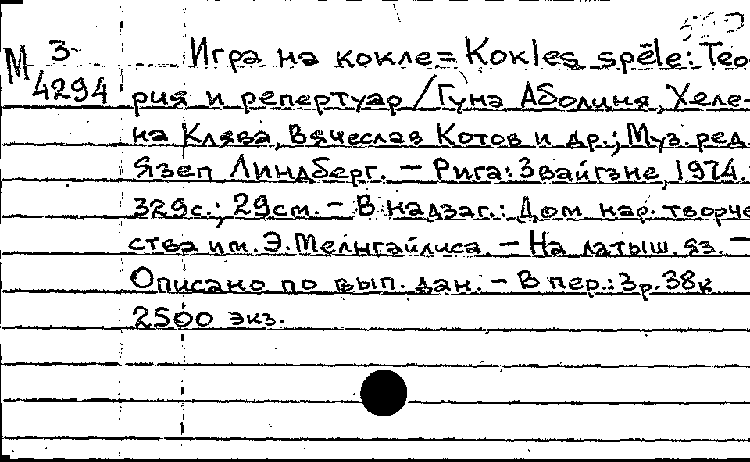 М 3-
4294
Игра на кокле = Kokles spēle: Тео-
рия и репертуар / Гуна Аболиня, Хеле-
на Клява, Вячеслав Котов и др.; Муз. ред.
Язеп Линдберг. – Рига: Звайгзне, 1974.
329с.; 29см. – В надзаг.: Дом нар. творче
ства им. Э. Мелнгайлиса. – На латыш. яз. –
Описано по вып. дан. – В пер.: 3р. 38к
2500 экз.